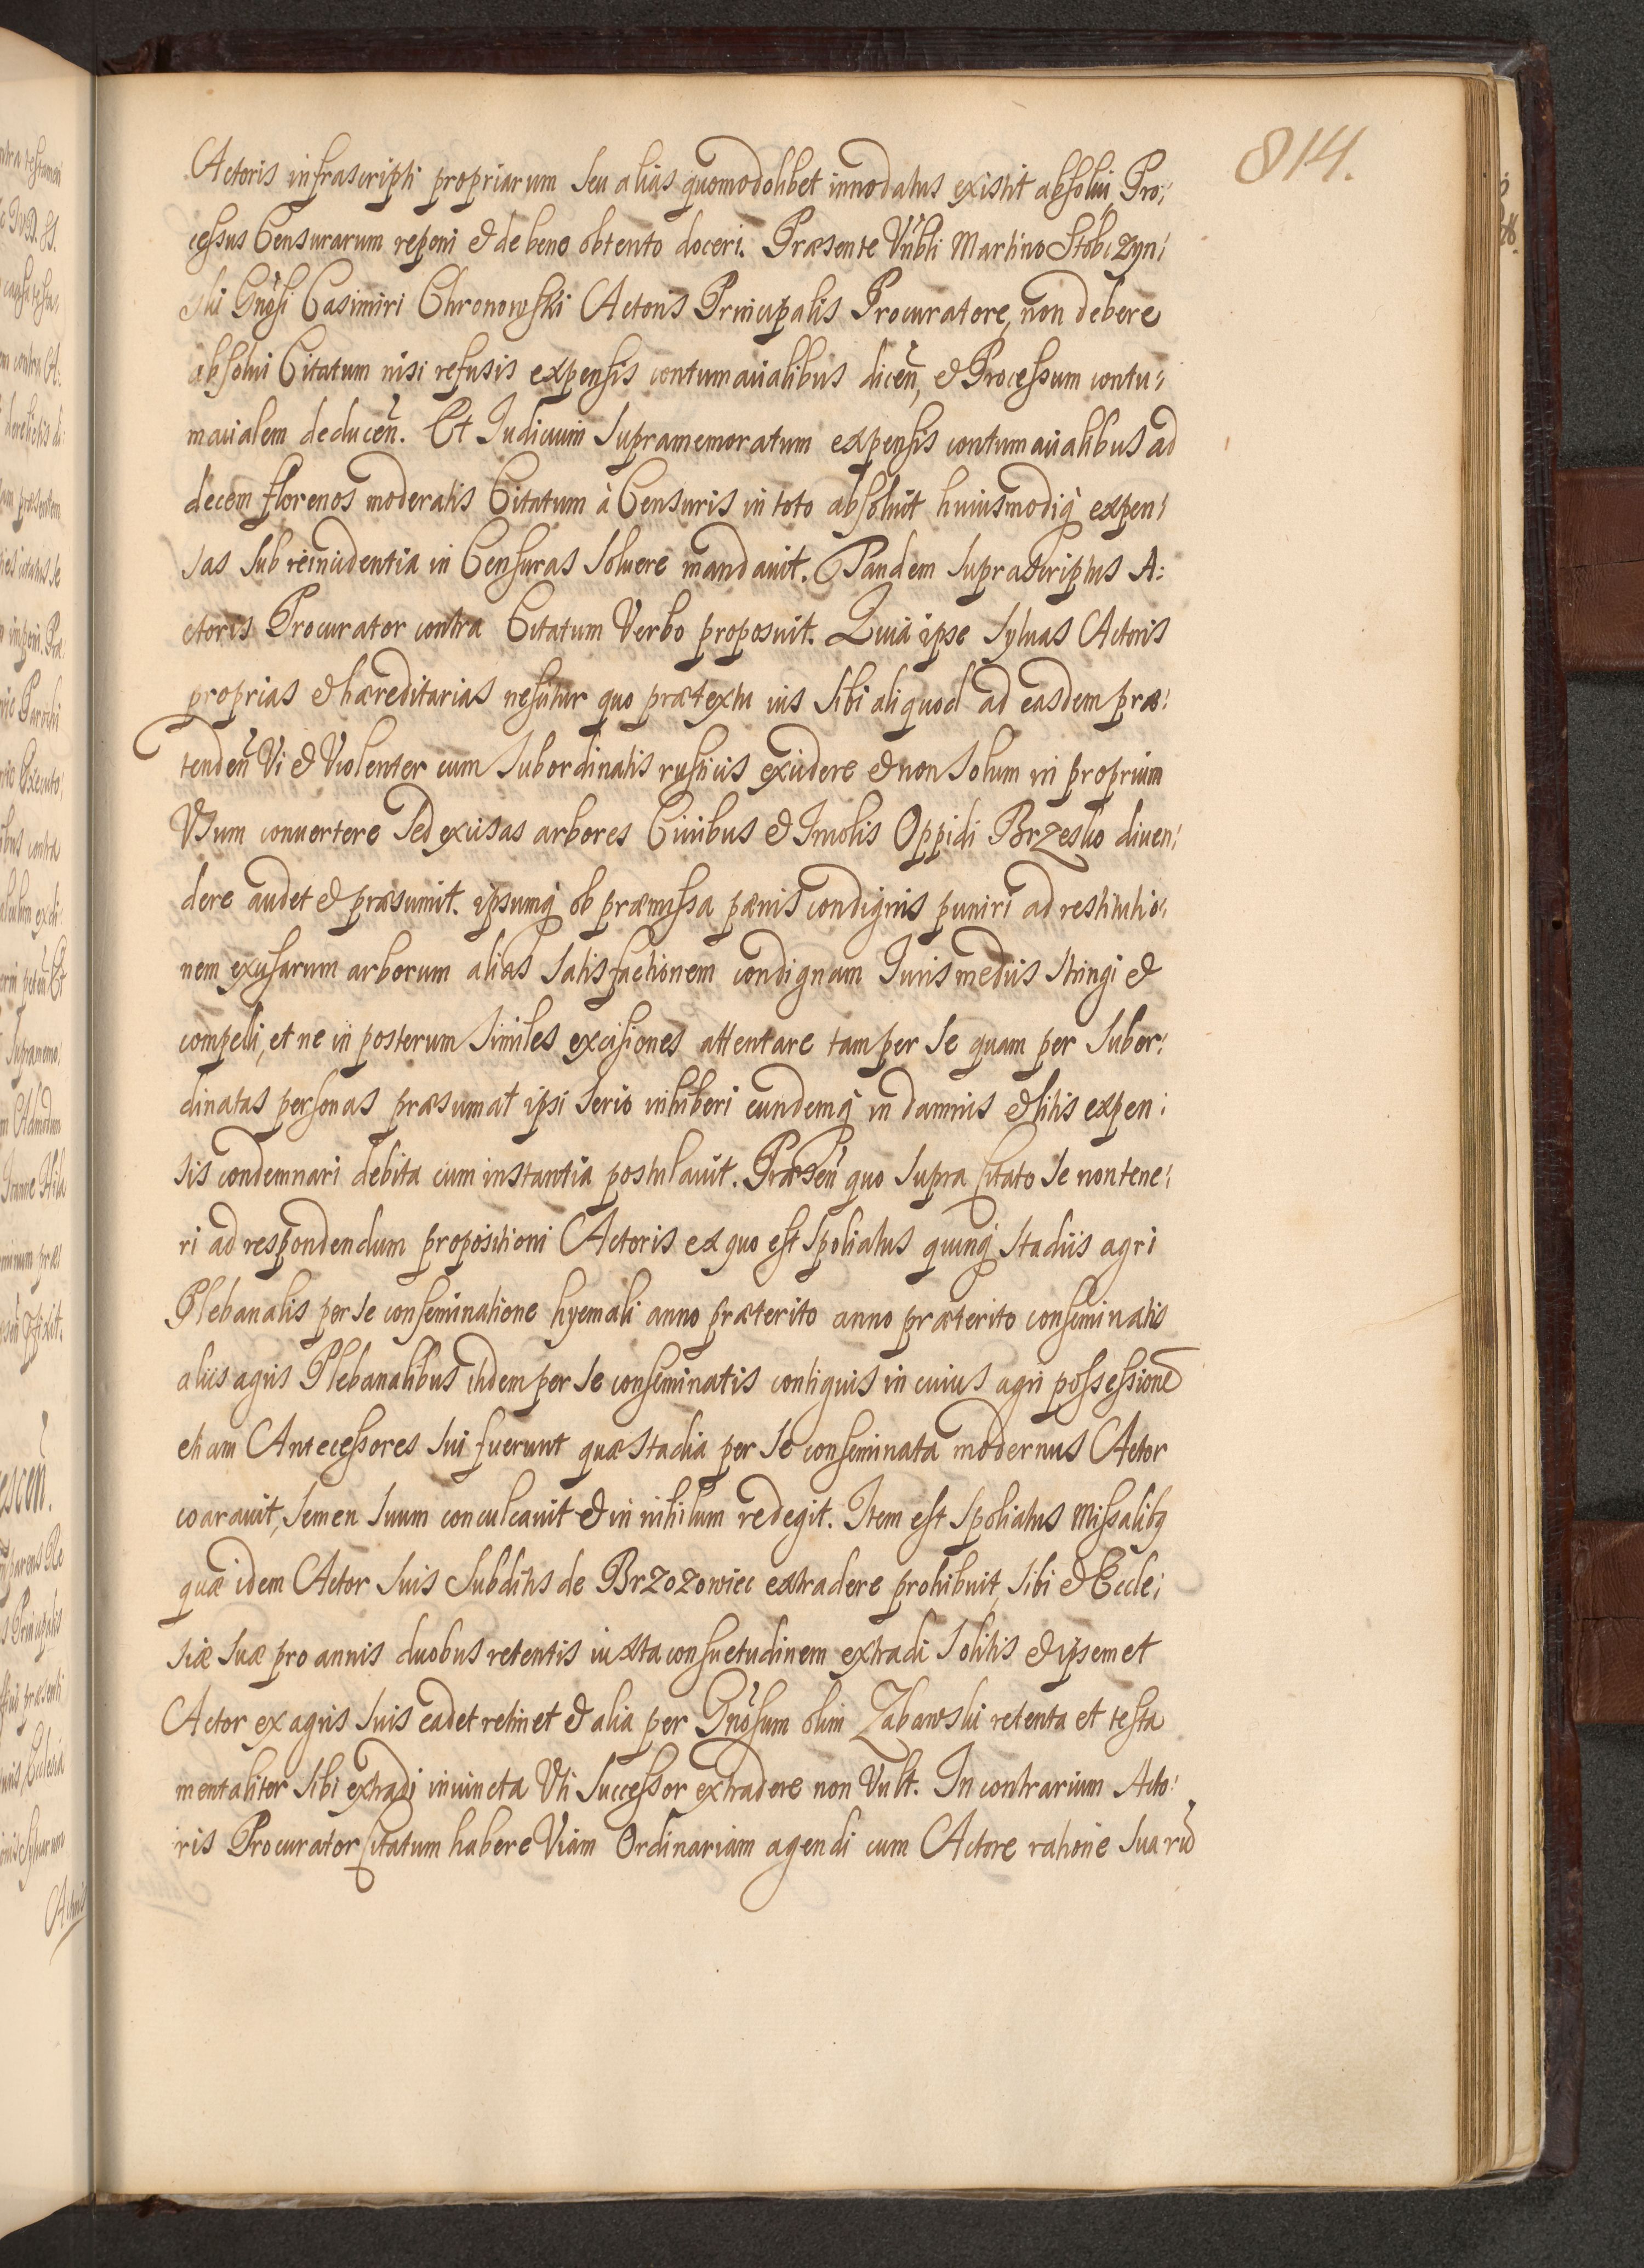 814.
Actoris infrascripti propriarum seu alias quomodolibet innodatus existit absolui, Pro:
cessus Censurarum reponi & de bene obtento doceri. Præsente Vnbli Martino Stobiczyn:
ski Gnosi Casimiri Chronowski Actoris Principalis Procuratore, non debere
absolui Citatum nisi refusis expensis contumacialibus dicen, & Processum contu:
macialem deducen. Et Iudicium supramemoratum expensis contumacialibus ad
decem florenos moderatis Citatum à Censuris in toto absoluit huiusmodiq expen:
sas sub reincidentia in Censuras soluere mandauit. Tandem suprascriptus A:
ctoris Procurator contra Citatum Verbo proposuit. Quia ipse syluas Actoris
proprias & hæreditarias nescitur quo prætextu ius sibi aliquod ad easdem præ:
tenden Vi & Violenter cum subordinatis rusticis excidere & non solum in proprium
Vsum conuertere sed excisas arbores Ciuibus & Incolis Oppidi Brzesko diuen:
dere audet & præsumit. ipsumq ob præmissa pænis condignis puniri ad restitutio:
nem excisarum arborum alias satisfactionem condignam Iuris medijs stringi &
compelli, et ne in posterum similes excisiones attentare tam per se quam per subor:
dinatas personas præsumat ipsi serio inhiberi eundemq in damnis & litis expen:
sis condemnari debita cum instantia postulauit. Præsen quo supra Citato se non tene:
ri ad respondendum propositioni Actoris ex quo est spoliatus quinq stadijs agri
Plebanalis per se conseminatione hyemali anno præterito anno præterito conseminatis
alijs agris Plebanalibus itidem per se conseminatis contiguis in cuius agri possessione
etiam Antecessores sui fuerunt quæ stadia per se conseminata modernus Actor
coarauit, semen suum conculcauit & in nihilum redegit. Item est spoliatus Missalibq
quæ idem Actor suis subditis de Brzozowiec extradere prohibuit, sibi & Eccle:
siæ suæ pro annis duobus retentis iuxta consuetudinem extradi solitis & ipsemet
Actor ex agris suis eadet retinet & alia per Gnosum olim Zabawski retenta et testa
mentaliter sibi extradi inuincta Vti successor extradere non Vult. In contrarium Acto:
ris Procurator Citatum habere Viam Ordinariam agendi cum Actore ratione suarũ